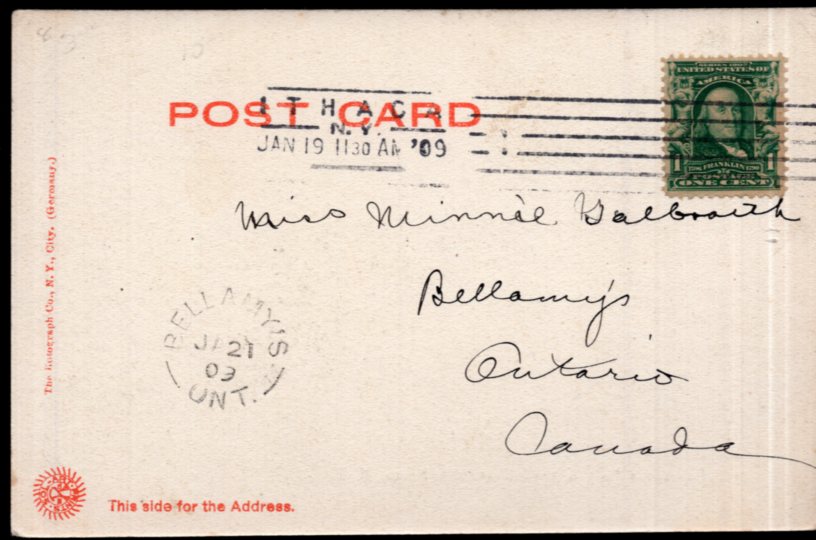 POST CARD
ITHACA
N.Y.
JAN 19 11 30 AM '09
SERIES 1902
UNITED STATES OF
AMERICA
FRANKLIN
POSTAGE
1 1
ONE CENT
Miss Minnie Galbraith
Bellamy's
Ontario
Canada
BELLAMY'S
JA 21
09
ONT.
The Rotograph Co., N. Y. City. (Germany.)
This side for the Address.